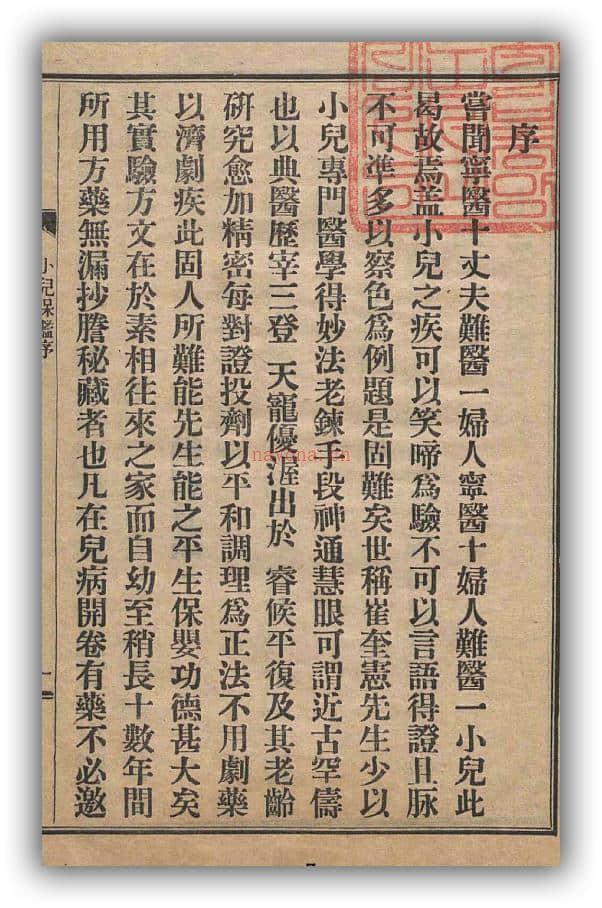 序
嘗聞寧醫十丈夫難醫一婦人寧醫十婦人難醫一小兒此
曷故焉盖小兒之疾可以笑啼爲驗不可以言語得證且脉
不可準多以察色爲例題是固難矣世稱崔奎憲先生少以
小兒專門醫學得妙法老鍊手段神通慧眼可謂近古罕儔
也以典醫歷宰三登 天寵優渥出於 睿候平復及其老齡
硏究愈加精密每對證投劑以平和調理爲正法不用劇藥
以濟劇疾此固人所難能先生能之平生保嬰功德甚大矣
其實驗方文在於素相往來之家而自幼至稍長十數年間
所用方藥無漏抄謄秘藏者也凡在兒病開卷有藥不必邀
小兒保鑑序
一
nayona.cn